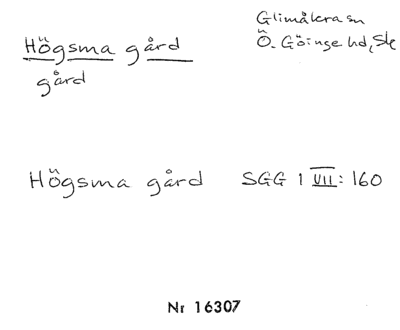 Glimåkra sn
Högsma gård
Ö. Göinge hd, Sk
gård
Högsma gård SGG 1 VII: 160
Nr 16307